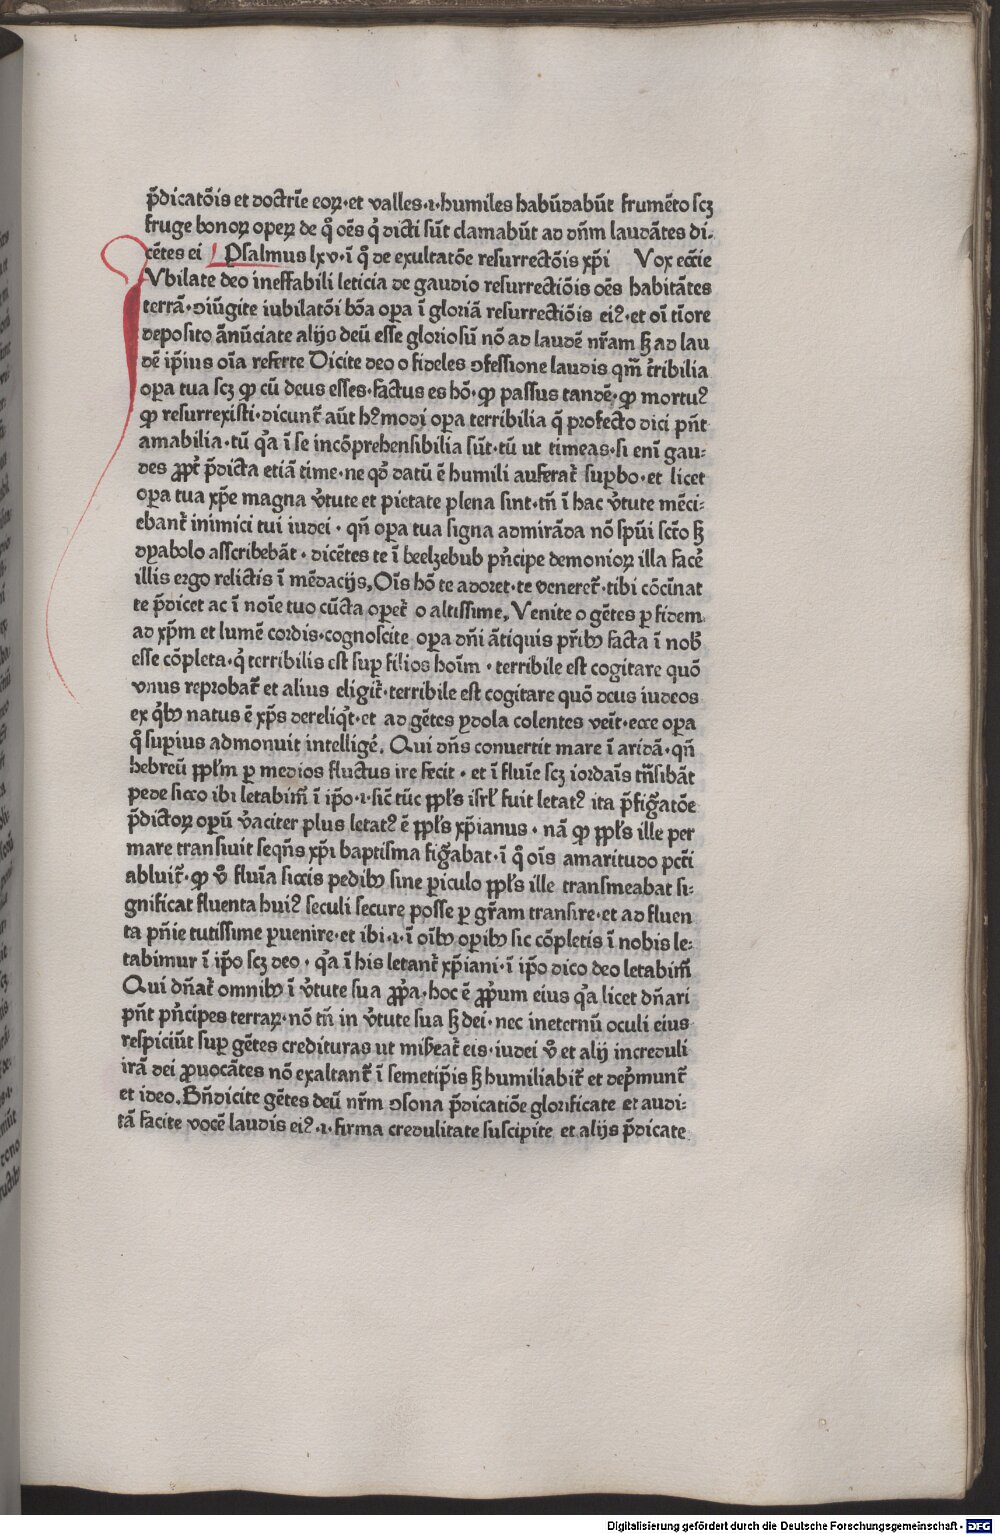 p̄dicatōis et doctrīe eoꝝ·et valles·i·humiles habūdabūt frumēto scꝫ
fruge bonoꝝ opeꝝ de q̄ oēs q̇ dicti sūt clamabūt ad dn̄m laudātes di⸗
cētes ei Psalmus lxv·ī q̄ de exultatōe resurrectōis xp̄i Vox eccīe
Vbilate deo ineffabili leticia de gaudio resurrectiōis oēs habitātes
terrā·ꝯiūgite iubilatōi bōa opa ī gloriā resurrectiōis eiꝰ·et oī tīore
deposito ānūciate alijs deū esse gloriosū nō ad laudē nr̄am sꝫ ad lau
dē ip̄ius oīa referte Dicite deo o fideles ꝯfessione laudis qm̄ t̄ribilia
oꝑa tua scꝫ ꝙ cū deus esses·factus es hō·ꝙ passus tandē·ꝙ mortuꝰ
ꝙ resurrexisti·dicunt̄ aūt hꝰmodi oꝑa terribilia q̄ profecto dici pn̄t
amabilia·tū q̇a ī se incōprehensibilia sūt·tū ut timeas·si enī gau⸗
des ꝓpt̄ p̄dicta etiā time·ne qd̄ datū ē humili auferat̄ suꝑbo·et licet
oꝑa tua xp̄e magna v̄tute et pietate plena sint·tn̄ ī hac v̄tute mēci⸗
ebant̄ inimici tui iudei·qn̄ oꝑa tua signa admirāda nō spūi scto sꝫ
dyabolo asscribebāt·dicētes te ī beelzebub pn̄cipe demonioꝝ illa facē
illis ergo relictis ī mēdacijs, Oīs hō te adoret·te veneret̄·tibi cōcinat
te p̄dicet ac ī noīe tuo cūcta oꝑet̄ o altissime, Venite o gētes ꝑ fidem
ad xp̄m et lumē cordis·cognoscite oꝑa dn̄i ātiquis pr̄ibꝰ facta ī nob̄
esse cōpleta·q̇ terribilis est suꝑ filios hoīm·terribile est cogitare quō
vnus reprobat̄ et alius eligit̄·terribile est cogitare quō deus iudeos
ex q̇bꝰ natus ē xp̄s dereliq̇t·et ad gētes ydola colentes veīt·ecce oꝑa
q̄ suꝑius admonuit intelligē, Qui dn̄s conuertit mare ī aridā·qn̄
hebreū ppl̄m ꝑ medios fluctus ire fecit·et ī fluīe scꝫ iordaīs trn̄sibāt
pede sicco ibi letabim̄ ī ip̄o·i·sic̄ tūc ppl̄s isrl̄ fuit letatꝰ ita p̄figᷓatōe
p̄dictoꝝ opeꝝ v̄aciter plus letatꝰ ē ppl̄s xp̄ianus·nā ꝙ ppl̄s ille per
mare transiuit seqn̄s xp̄i baptisma figᷓabat·ī q̄ oīs amaritudo pcti
abluit̄·ꝙ v̄o fluīa siccis pedibꝰ sine ꝑiculo ppl̄s ille transmeabat si⸗
gnificat fluenta huiꝰ seculi secure posse ꝑ gr̄am transire·et ad fluen
ta pn̄ie tutissime ꝑuenire·et ibi·i·ī oībꝰ oꝑibꝰ sic cōpletis ī nobis le⸗
tabimur ī ip̄o scꝫ deo·q̇a ī his letant̄ xp̄iani·ī ip̄o dico deo letabim̄
Qui dn̄at̄ omnibꝰ ī v̄tute sua ꝓp̄a·hoc ē ꝓp̄um eius q̇a licet dn̄ari
pn̄t pn̄cipes terraꝝ·nō tn̄ in v̄tute sua sꝫ dei·nec ineternū oculi eius
respiciūt suꝑ gētes credituras ut miseat̄ eis·iudei v̄o et alij increduli
irā dei ꝓuocātes nō exaltant̄ ī semetip̄is sꝫ humiliabit̄ et dep̄munt̄
et ideo, Bn̄dicite gētes deū nr̄m ꝯsona p̄dicatiōe glorificate et audi⸗
tā facite vocē laudis eiꝰ·i·firma credulitate suscipite et alijs p̄dicate
Digitalisierung gefördert durch die Deutsche Forschungsgemeinschaft - DFG